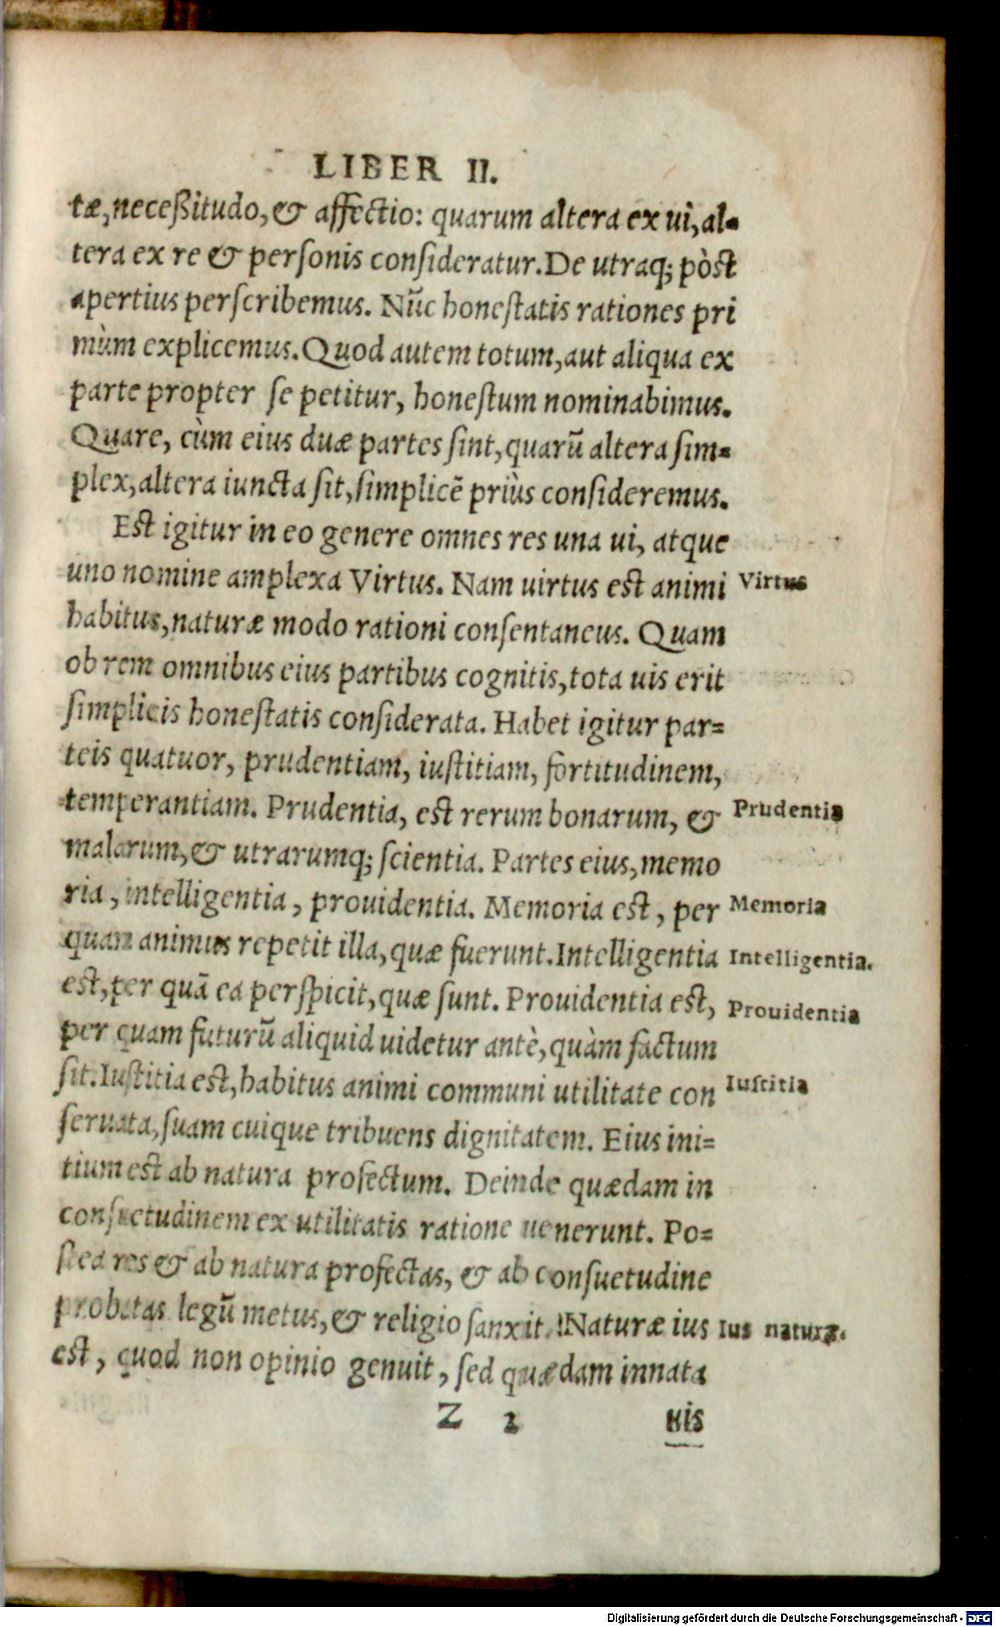 LIBER II.
tæ, neceßitudo, & affectio: quarum altera ex ui, al-
tera ex re & personis consideratur. De utraq; pòst
apertius perscribemus. Nũc honestatis rationes pri
mùm explicemus. Quod autem totum, aut aliqua ex
parte propter se petitur, honestum nominabimus.
Quare, cùm eius duæ partes sint, quarũ altera sim-
plex, altera iuncta sit, simplicẽ priùs consideremus.
Est igitur in eo genere omnes res una ui, atque
uno nomine amplexa Virtus. Nam uirtus est animi
Virtus
habitus, naturæ modo rationi consentaneus. Quam
ob rem omnibus eius partibus cognitis, tota uis erit
simplicis honestatis considerata. Habet igitur par-
teis quatuor, prudentiam, iustitiam, fortitudinem,
temperantiam. Prudentia, est rerum bonarum, &
Prudentia
malarum, & utrarumq; scientia. Partes eius, memo
ria, intelligentia, prouidentia. Memoria est, per
Memoria
quam animus repetit illa, quæ fuerunt. Intelligentia
Intelligentia.
est, per quã ea perspicit, quæ sunt. Prouidentia est,
Prouidentia
per quam futurũ aliquid uidetur antè, quàm factum
sit. Iustitia est, habitus animi communi utilitate con
Iustitia
seruata, suam cuique tribuens dignitatem. Eius ini-
tium est ab natura profectum. Deinde quædam in
consuetudinem ex utilitatis ratione uenerunt. Po-
stea res & ab natura profectas, & ab consuetudine
probatas legũ metus, & religio sanxit. Naturæ ius
Ius naturæ.
est, quod non opinio genuit, sed quædam innata
Z 2 uis
Digitalisierung gefördert durch die Deutsche Forschungsgemeinschaft - DFG